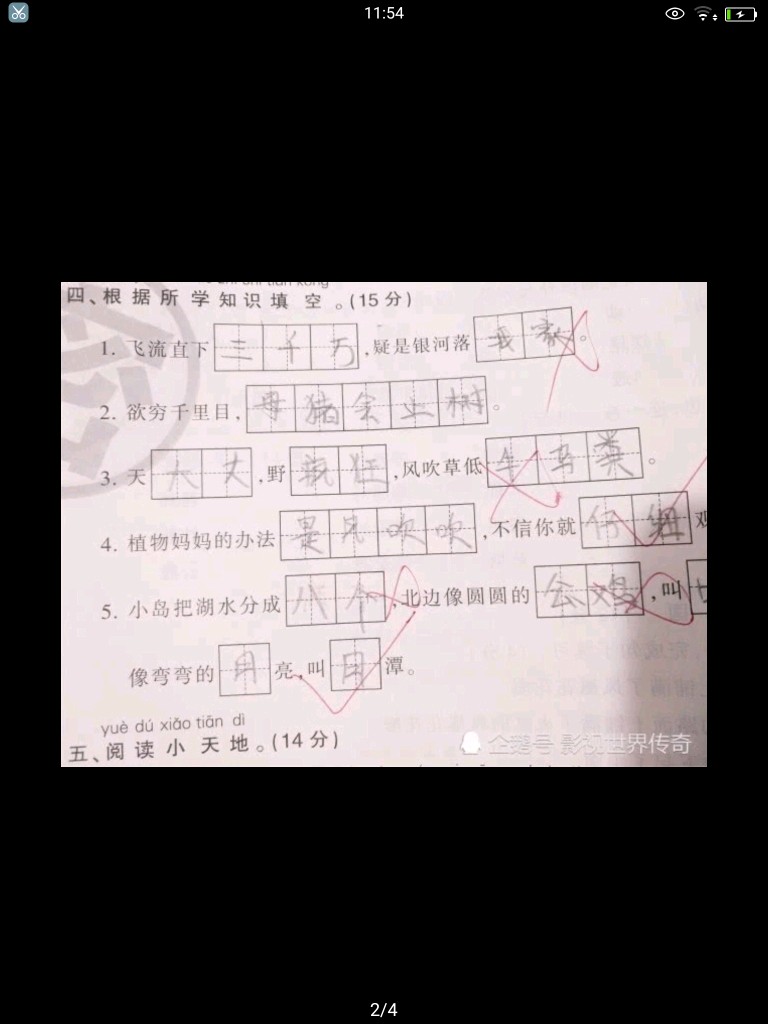 11:54
四、根据所学知识填空。(15分)
1. 飞流直下三千万,疑是银河落我家。
2. 欲穷千里目,母猪会上树。
3. 天大丈,野疯狂,风吹草低牛马粪。
4. 植物妈妈的办法是风吹吹,不信你就仔细观
5. 小岛把湖水分成八个,北边像圆圆的公鸡,叫
像弯弯的月亮,叫日潭。
yuè dú xiǎo tiān dì
五、阅读小天地。(14分)
企鹅号 影视世界传奇
2/4